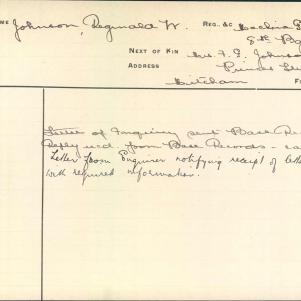 ME Johnson, Reginald W. REG., &C
8th Ba
NEXT OF KIN Mrs F. E. Johnson
ADDRESS Princes
Mitcham F
Letter of Inquiry sent Base Re
Reply recd from Base Records -
Letter from Enquirer notifying receipt of lette
with required information.